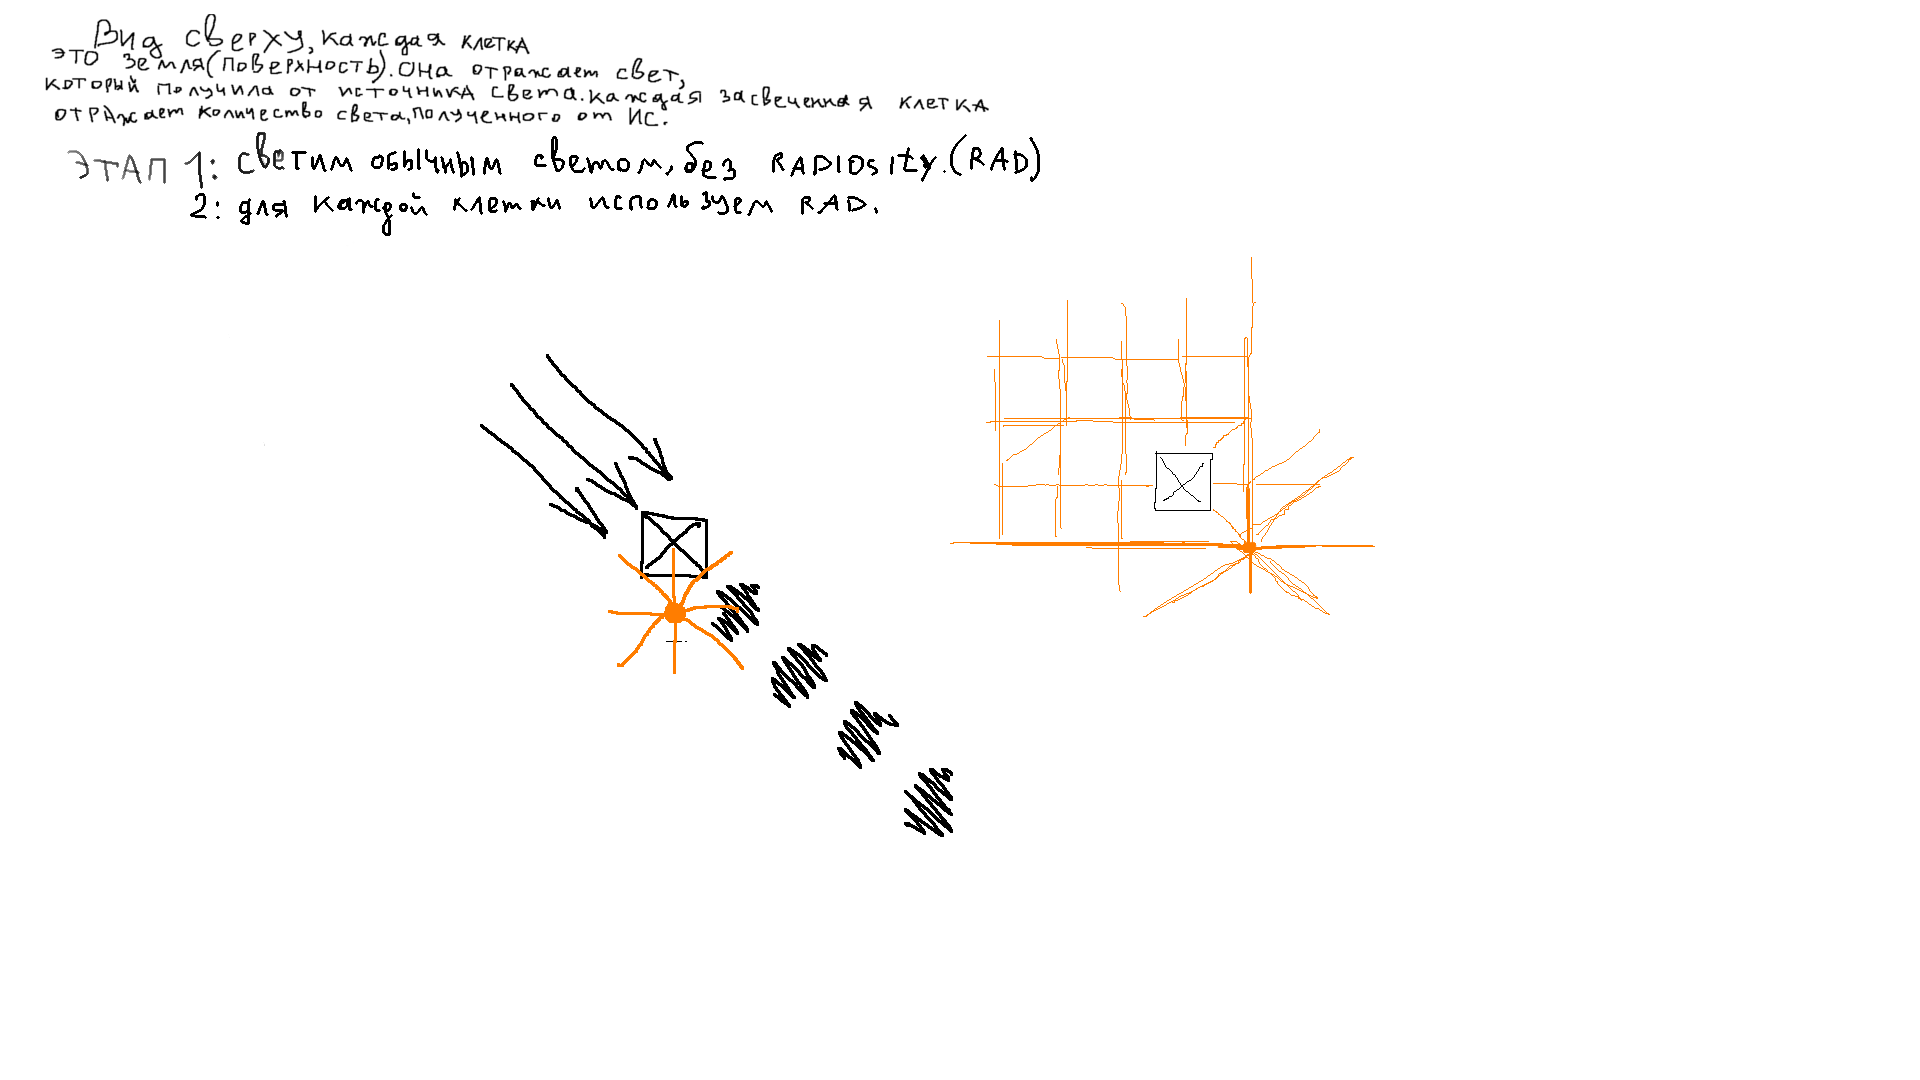 Вид сверху, каждая клетка
это земля(поверхность). Она отражает свет,
который получила от источника света. каждая засвеченная клетка
отражает количество света, полученного от ИС.
ЭТАП 1: светим обычным светом, без RADIOsity. (RAD)
2: для каждой клетки используем RAD.